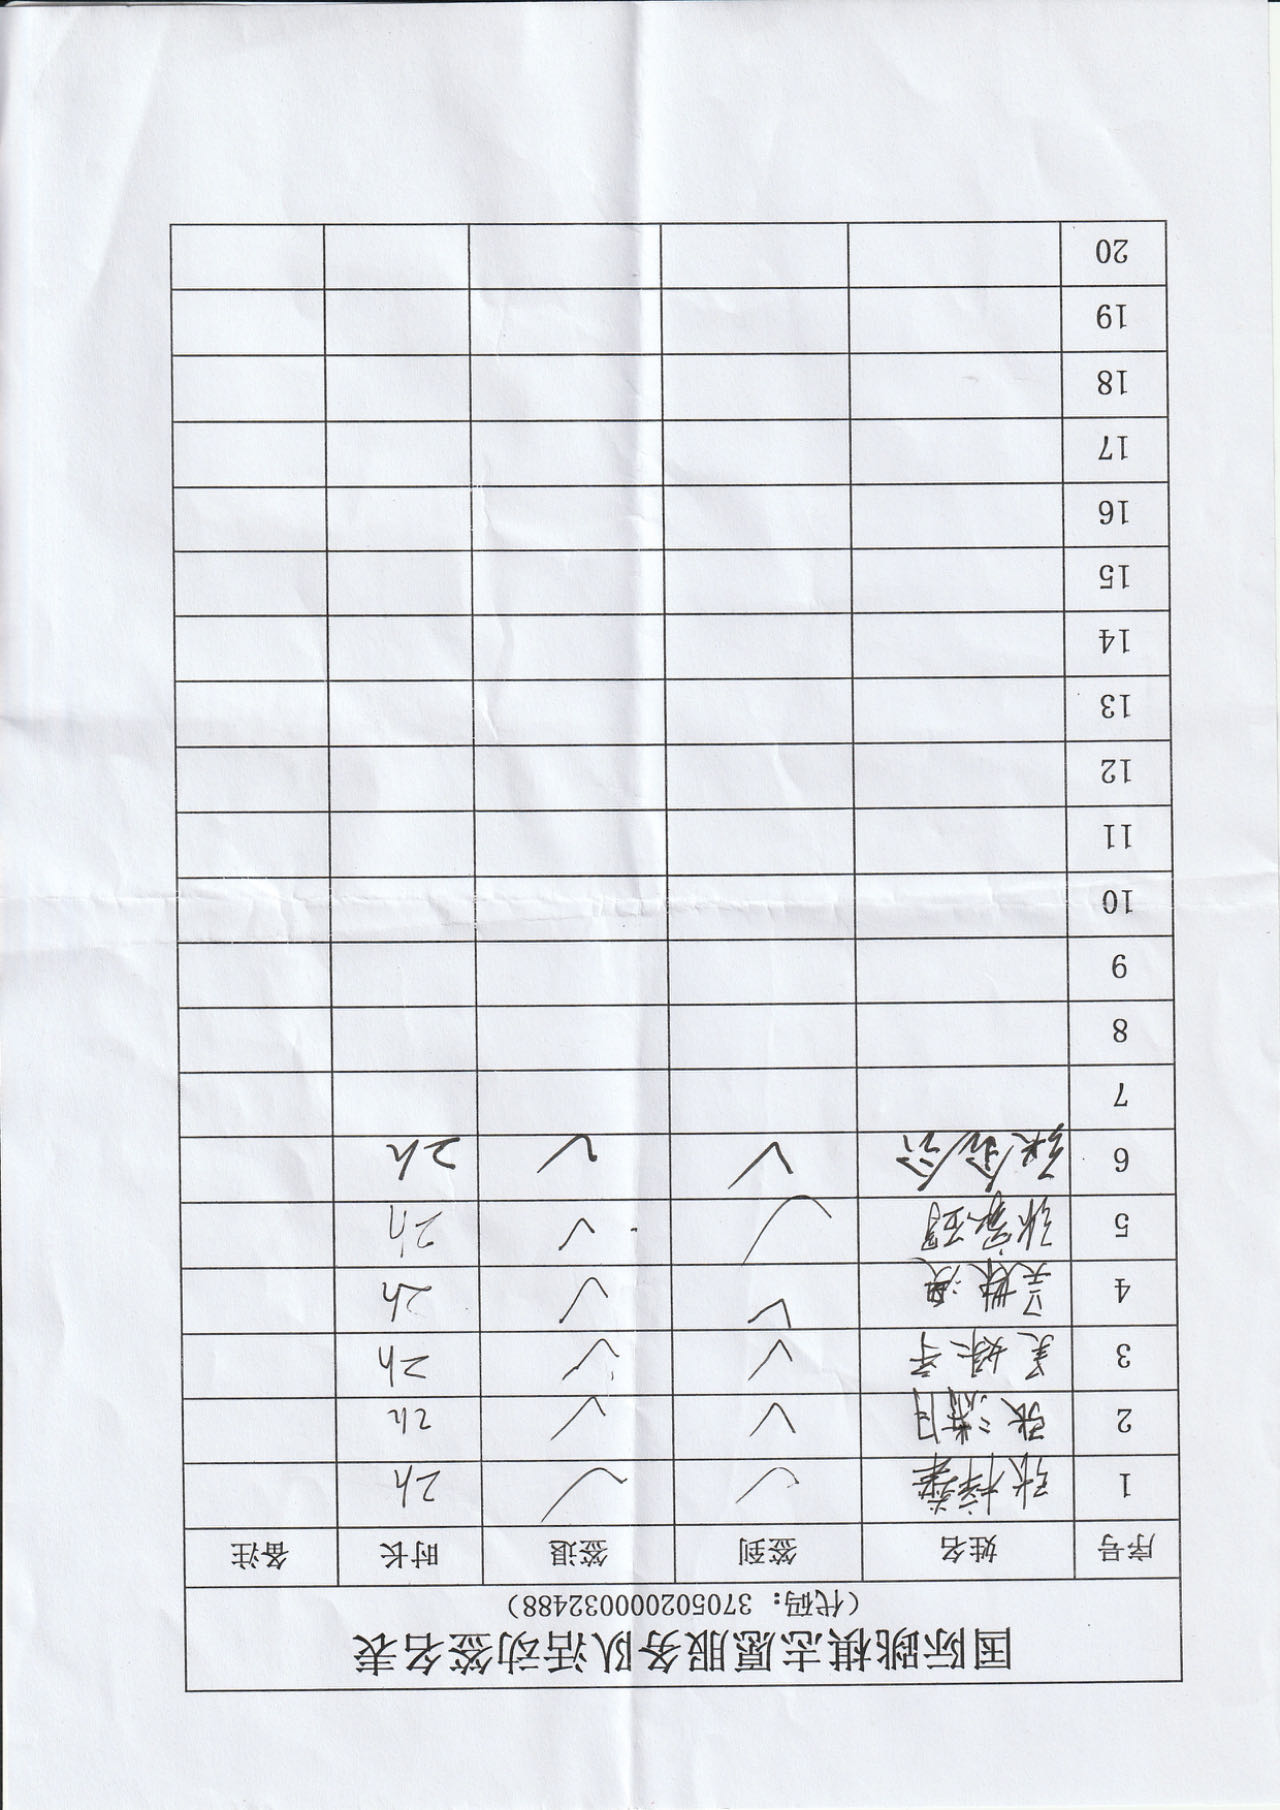 国际跳棋志愿服务队活动签名表
（代码：37050200032488）
序号 姓名 签到 签退 时长 备注
1 张梓 ✓ ✓ 2h
2 张 ✓ ✓ 2h
3 吴 ✓ ✓ 2h
4 吴 ✓ ✓ 2h
5 张家 ✓ ✓ 2h
6 张 ✓ ✓ 2h
7
8
9
10
11
12
13
14
15
16
17
18
19
20